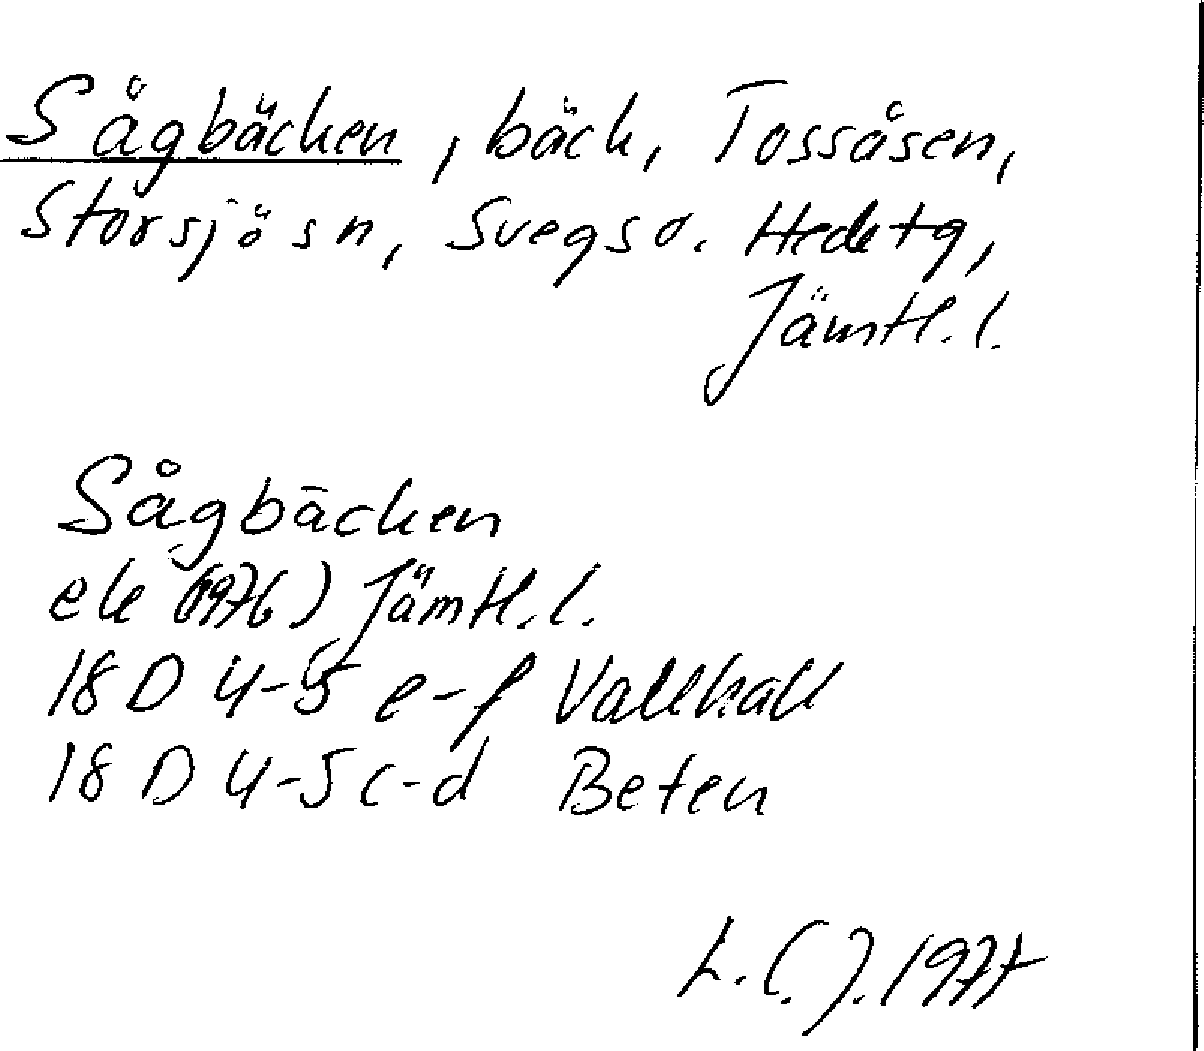 Sågbäcken, bäck, Tossåsen,
Storsjö sn, Svegs o. Hede tg,
Jämtl. l.
Sågbäcken
ek (1976) Jämtl. l.
18 D 4-5 e-f Vallhall
18 D 4-5 c-d Beten
L. C. J. 1977